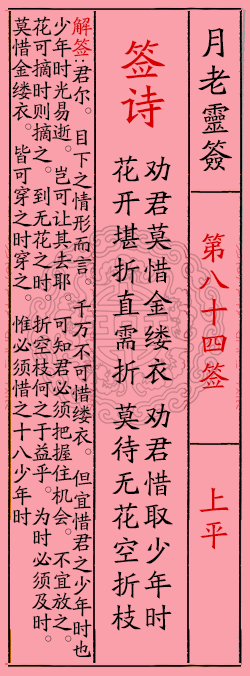 月老靈簽
第八十四签
上平
签诗
劝君莫惜金缕衣 劝君惜取少年时
花开堪折直需折 莫待无花空折枝
解签:君尔。目下之情形而言。千万不可惜缕衣。但宜惜君之少年时也
少年时光易逝。岂可让其去耶。可知君必须把握住机会。不宜放之。
花可摘时则摘之。到无花之时。折空枝何之于益乎。为时必须及时。
莫惜金缕衣。皆可穿之时穿之。惟必须惜之十八少年时